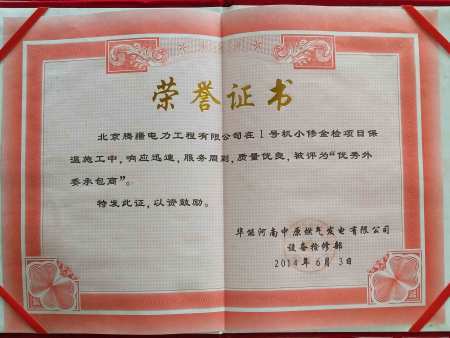 荣誉证书
北京腾疆电力工程有限公司在1号机小修金检项目保
温施工中，响应迅速，服务周到，质量优良，被评为“优秀外
委承包商”。
特发此证，以资鼓励。
华能河南中原燃气发电有限公司
设备检修部
2014年6月3日